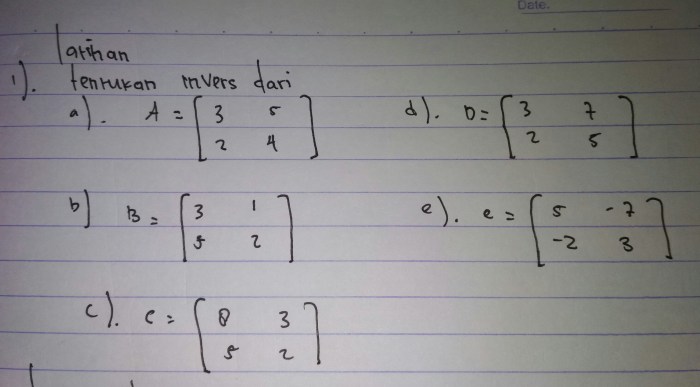 Date.
latihan
1). tentukan invers dari
a). A = [3 5
2 4]
d). D = [3 7
2 5]
b) B = [3 1
5 2]
e). e = [5 -7
-2 3]
c). C = [8 3
5 2]